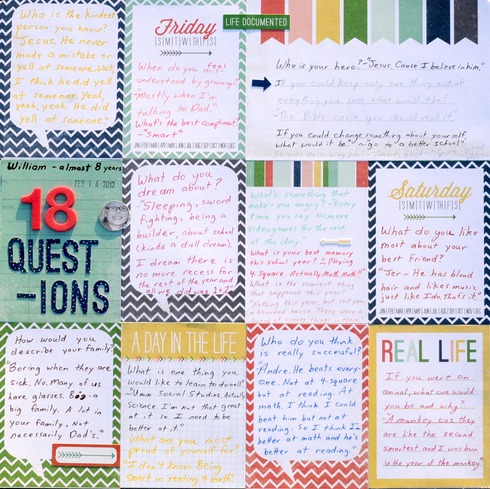 Who is the kindest
person you know?
"Jesus. He never
made a mistake or
yell at someone. Wait,
I think he did yell
at someone. Yeah,
yeah, yeah. He did
yell at someone?
Friday
|S|M|T|W|T|F|S|
When do you feel
understood by grownups?
"Mostly when I'm
talking to Dad."
What's the best compliment?
-"Smart"
JAN|FEB|MAR|APR|MAY|JUN|JUL|AUG|SEP|OCT|NOV|DEC
LIFE DOCUMENTED
Who is your hero? -"Jesus. Cause I believe in him."
If you could keep only one thing out of
everything you have, what would it be?
-"The Bible cause you should read it."
If you could change something about yourself,
what would it be? -go to a better school"
William - almost 8 years
FEB 14 2012
18
QUEST
-IONS
What do you
dream about?
-"Sleeping, sword
fighting, being a
builder, about school
(kinda a dull dream).
I dream there is
no more recess for
the rest of the year and
all we did was
What's something that
make's you angry? -"Every
time you say no more
videogames for the rest
of the day."
What is your best memory
this school year? -"Playing
4-Square. Actually Math. Math!!"
What is the
happened this
Saturday
|S|M|T|W|T|F|S|
What do you like
most about your
best friend?
"Jer- He has blond
hair and likes music
just like Ido. That's it."
JAN|FEB|MAR|APR|MAY|JUN|JUL|AUG|SEP|OCT|NOV|DEC
How would you
describe your family?
"Boring when they are
sick. No. Many of us
have glasses. a
big family. A lot in
your family. Not
necessarily Dad's."
A DAY IN THE LIFE
What is one thing you
would like to learn to do well?
-"Umm Social Studies. Actually
Science. I'm not that great
at it so I need to be
better at it."
What are you most
proud of yourself for?
-"I don't know. Being
smart in reading & math."
Who do you think
is really successful?
"Andre. He beats every-
one. Not at 4-square
but at reading. At
math, I think I could
beat him but not at
reading. So I think I'm
better at math and he's
better at reading."
REAL LIFE
If you were an
animal, what one would
you be and why?
"A monkey cuz they
are like the second
smartest and I was born
in the year of the monkey."